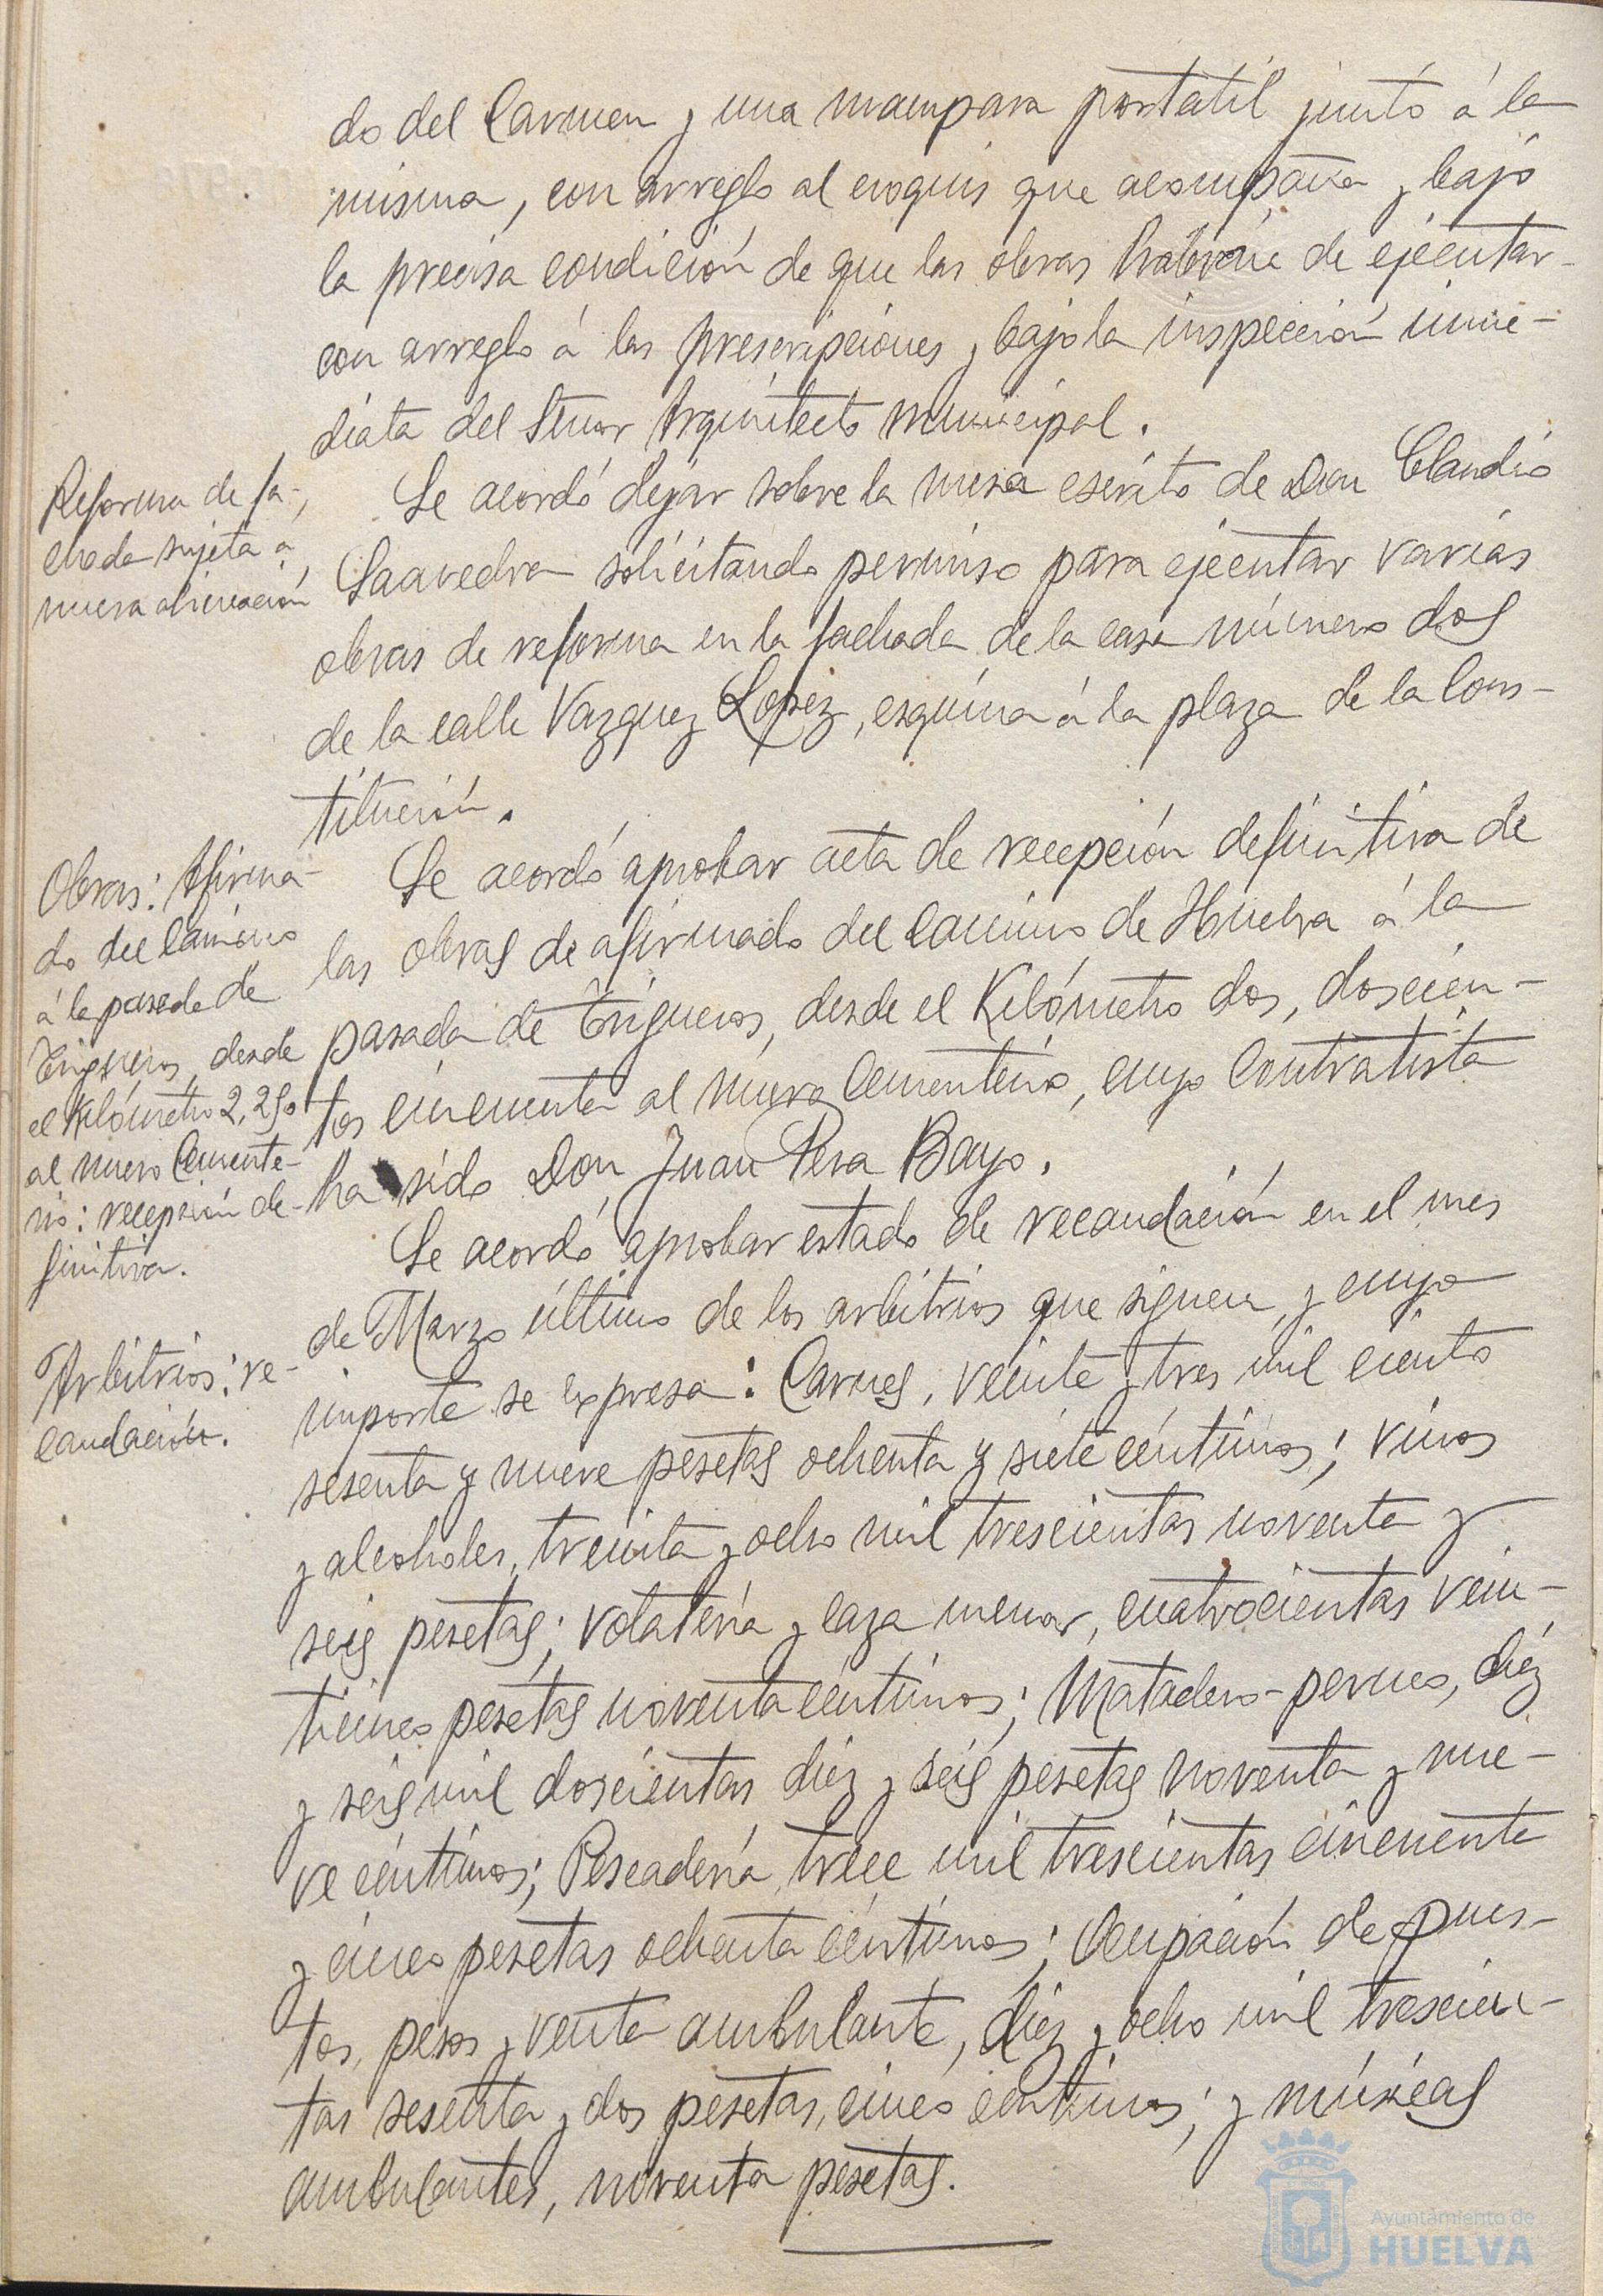 do del Carmen y una mampara portátil junto á la
misma, con arreglo al croquis que acompaña y bajo
la precisa condición de que las obras habrán de ejecutar-
con arreglo á las prescripciones y bajo la inspección inme-
diata del Señor Arquitecto municipal.
Reforma de fa-
chada sujeta á
nueva alineación
Se acordó dejar sobre la mesa escrito de Don Claudio
Saavedra solicitando permiso para ejecutar varias
obras de reforma en la fachada de la casa número dos
de la calle Vazquez Lopez, esquina á la plaza de la Cons-
titución.
Obras: Afirma-
do del Camino
á la pasada de
Trigueros, desde
el Kilómetro 2,250
al nuevo Cemente-
rio: recepción de-
finitiva.
Se acordó aprobar acta de recepción definitiva de
las obras de afirmado del Camino de Huelva á la
pasada de Trigueros, desde el Kilómetro dos, doscien-
tos cincuenta al nuevo Cementerio, cuyo Contratista
ha sido Don Juan Pera Bayo.
Arbitrios: re-
caudación.
Se acordó aprobar estado de recaudación en el mes
de Marzo último de los arbitrios que siguen, y cuyo
importe se expresa: Carnes, veinte y tres mil ciento
sesenta y nueve pesetas ochenta y siete céntimos; vinos
y alcoholes, treinta y ocho mil trescientas noventa y
seis pesetas; volatería y caza menor, cuatrocientas vein-
ticinco pesetas noventa céntimos; Matadero-perneo, diéz
y seis mil doscientas diéz y seis pesetas noventa y nue-
ve céntimos; Pescadería, trece mil trescientas cincuenta
y cinco pesetas ochenta céntimos; Ocupación de pues-
tos, pesos y venta ambulante, diéz y ocho mil trescien-
tas sesenta y dos pesetas, cinco céntimos; y músicas
ambulantes, noventa pesetas.
Ayuntamiento de
HUELVA